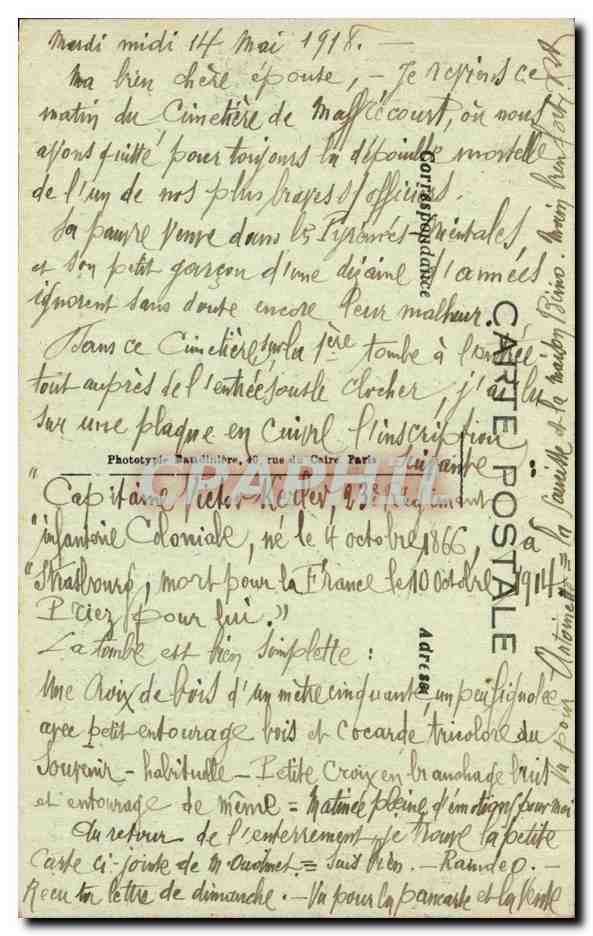 Mardi midi 14 Mai 1918. —
Ma bien chère épouse, — Je reviens ce
matin du Cimetière de Maffrécourt, où nous
avons quitté pour toujours la dépouille mortelle
de l'un de nos plus braves s/officiers.
Sa pauvre Veuve dans les Pyrénées-Orientales,
et son petit garçon d'une dizaine d'années
ignorent sans doute encore leur malheur.
Dans ce Cimetière, sur la 1ère tombe à l'entrée
tout auprès de l'entrée sous le clocher, j'ai lu
sur une plaque en cuivre l'inscription
suivante
Phototypie Baudinière, 40, rue du Caire, Paris
CARTE POSTALE
Correspondance
Adresse
"Capitaine Victor 23e Régiment
"infanterie Coloniale, né le 4 octobre 1866, à
"Strasbourg, mort pour la France le 10 Octobre 1914.
Priez pour lui."
La tombe est bien simplette :
Une Croix de bois d'un mètre cinquante, un peu fignolée
avec petit entourage bois et cocarde tricolore du
Souvenir - habituelle - Petite Croix en branchage brut
et entourage de même = Matinée pleine d'émotions pour moi
Au retour de l'enterrement je trouve la petite
Carte ci-jointe de M. = Suis bien. —
Reçu ta lettre de dimanche. — Vu pour la pancarte et la Vente
Vu pour Antoinette = la et la maison